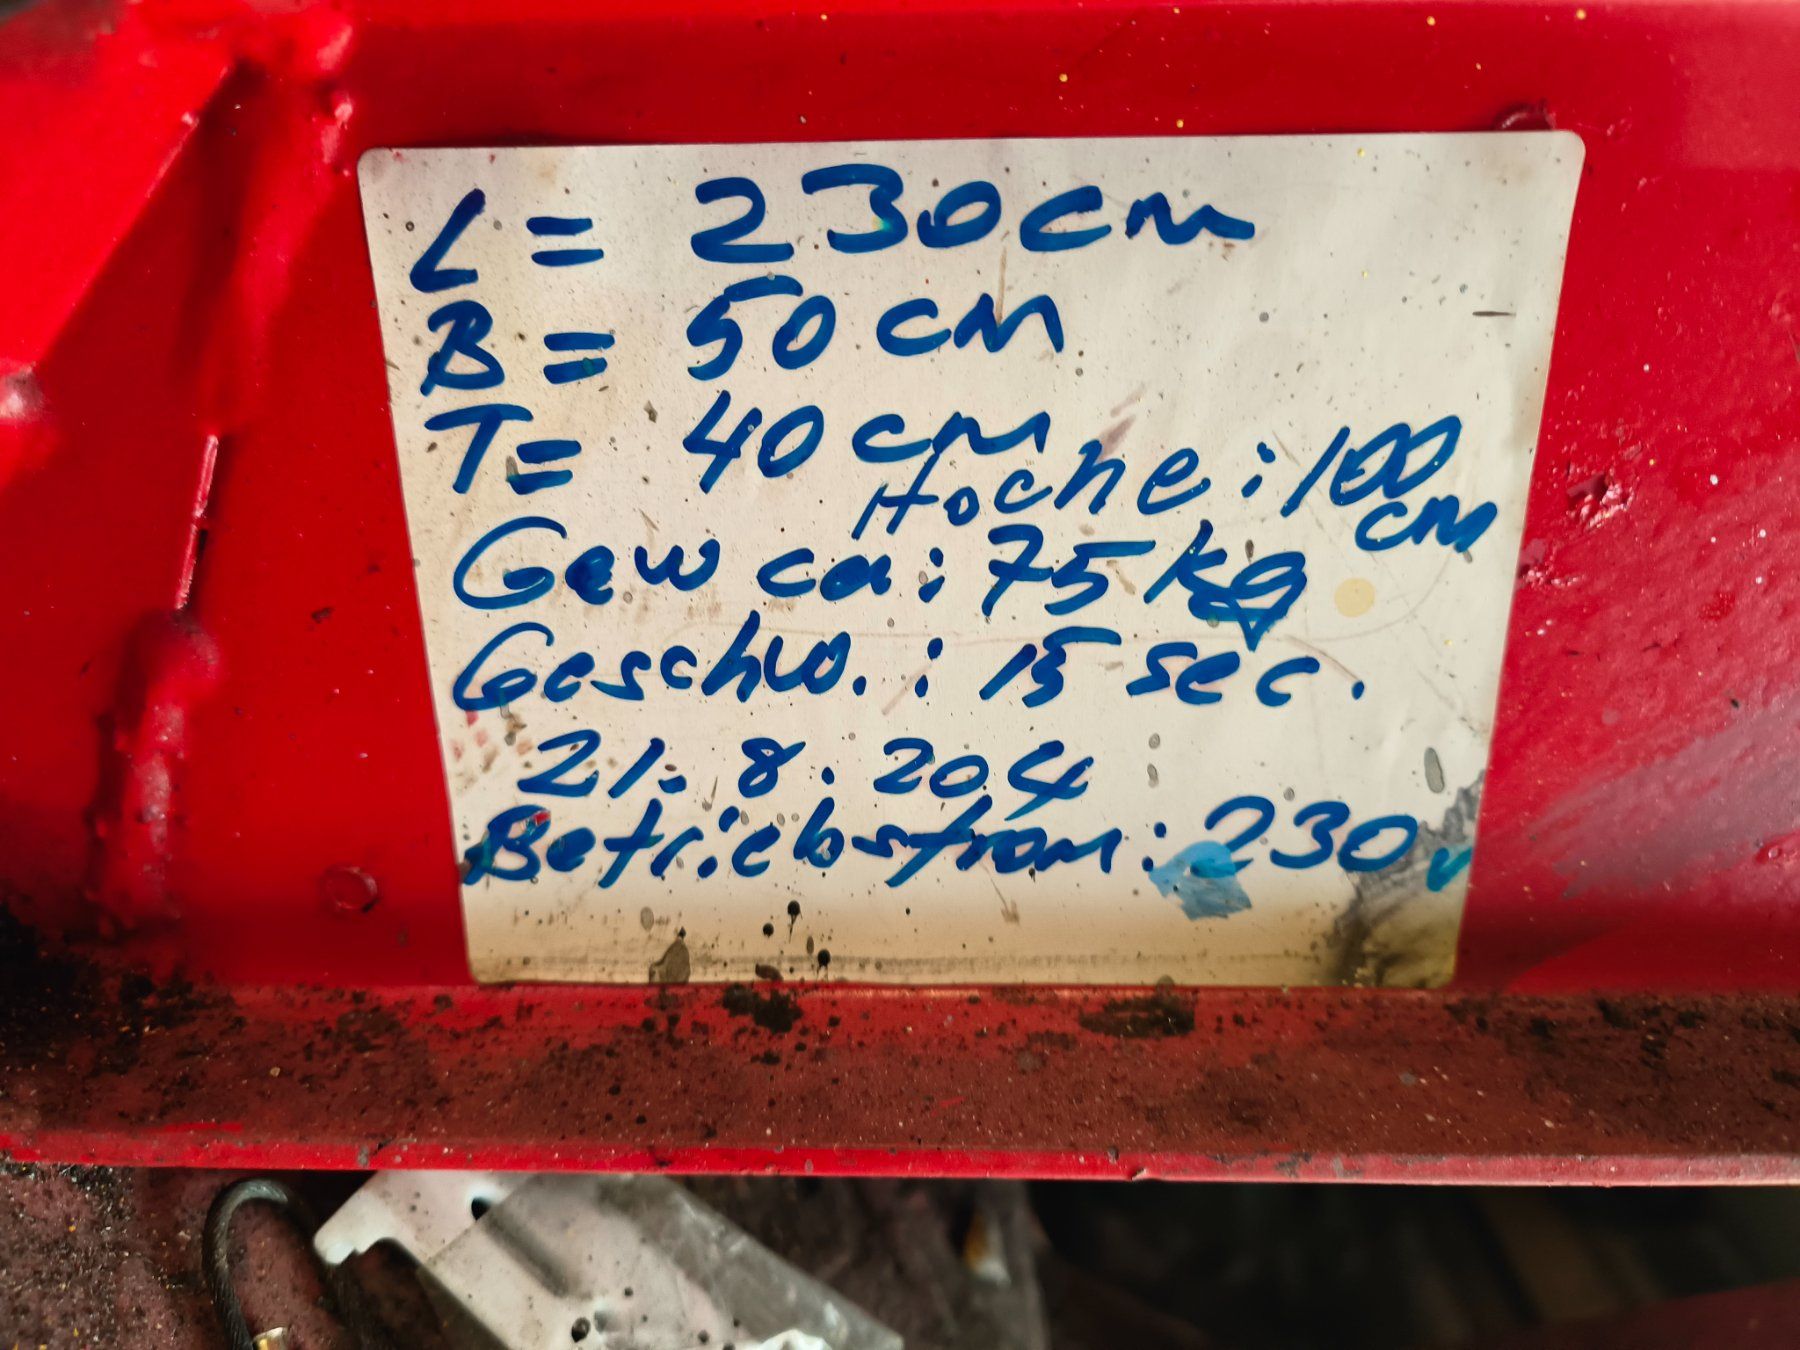 L = 230 cm
B = 50 cm
T = 40 cm
Hoche : 100 cm
Gew ca : 75 kg
Geschw. : 15 sec.
21. 8. 204
Betriebstrom : 230 v